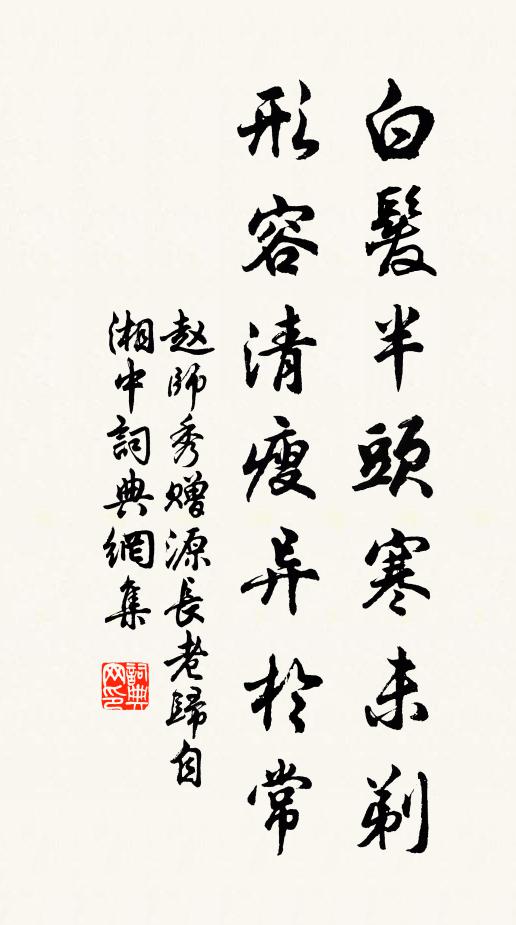 白髮半頭寒未剃
形容清瘦异於常
赵師秀贈源長老歸自
湘中詞典網集
詞典网印